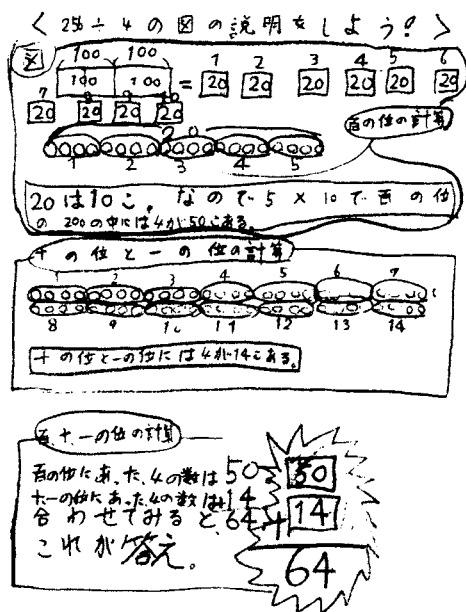 〈256÷4の図の説明をしよう!〉
図
100 100
100 100 = 20 20 20 20 20 20
1 2 3 4 5 6
7 8 9 10
20 20 20 20
百の位の計算
20
1 2 3 4 5
20は10こ。なので5×10で百の位
の200の中には4が50こある。
十の位と一の位の計算
1 2 3 4 5 6 7
8 9 10 11 12 13 14
十の位と一の位には4が14こある。
百、十、一の位の計算
百の位にあった4の数は50
十、一の位にあった4の数は14
合わせてみると、64
これが答え。
50
+14
64